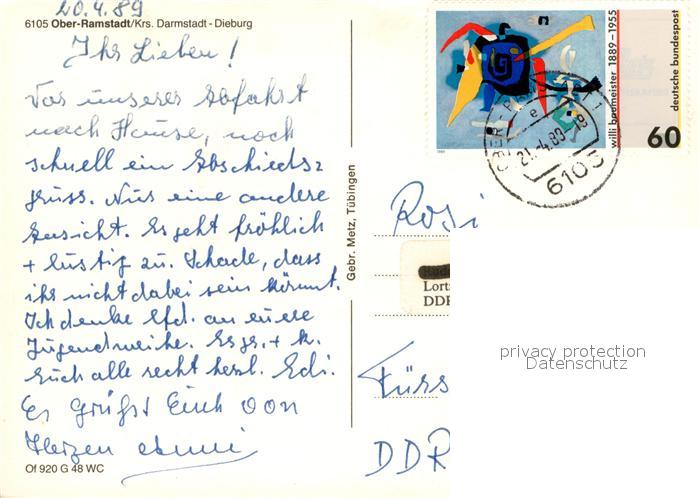 20.4.89
6105 Ober-Ramstadt/Krs. Darmstadt - Dieburg
Ihr Lieben!
Vor unserer Abfahrt
nach Hause, noch
schnell ein Abschieds=
gruss. Nur eine andere
Ansicht. Es geht fröhlich
+ lustig zu. Schade, dass
ihr nicht dabei sein könnt.
Ich denke lfd. an euere
Jugendweihe. Es gr. + k.
Euch alle recht herzl. Edi.
Es Grüßt Euch von
Herzen
Of 920 G 48 WC
Gebr. Metz, Tübingen
willi baumeister 1889-1955
deutsche bundespost
60
21.-4.89-19
6105
Rosi
Lort
DDR
privacy protection
Datenschutz
Fürs
DDR